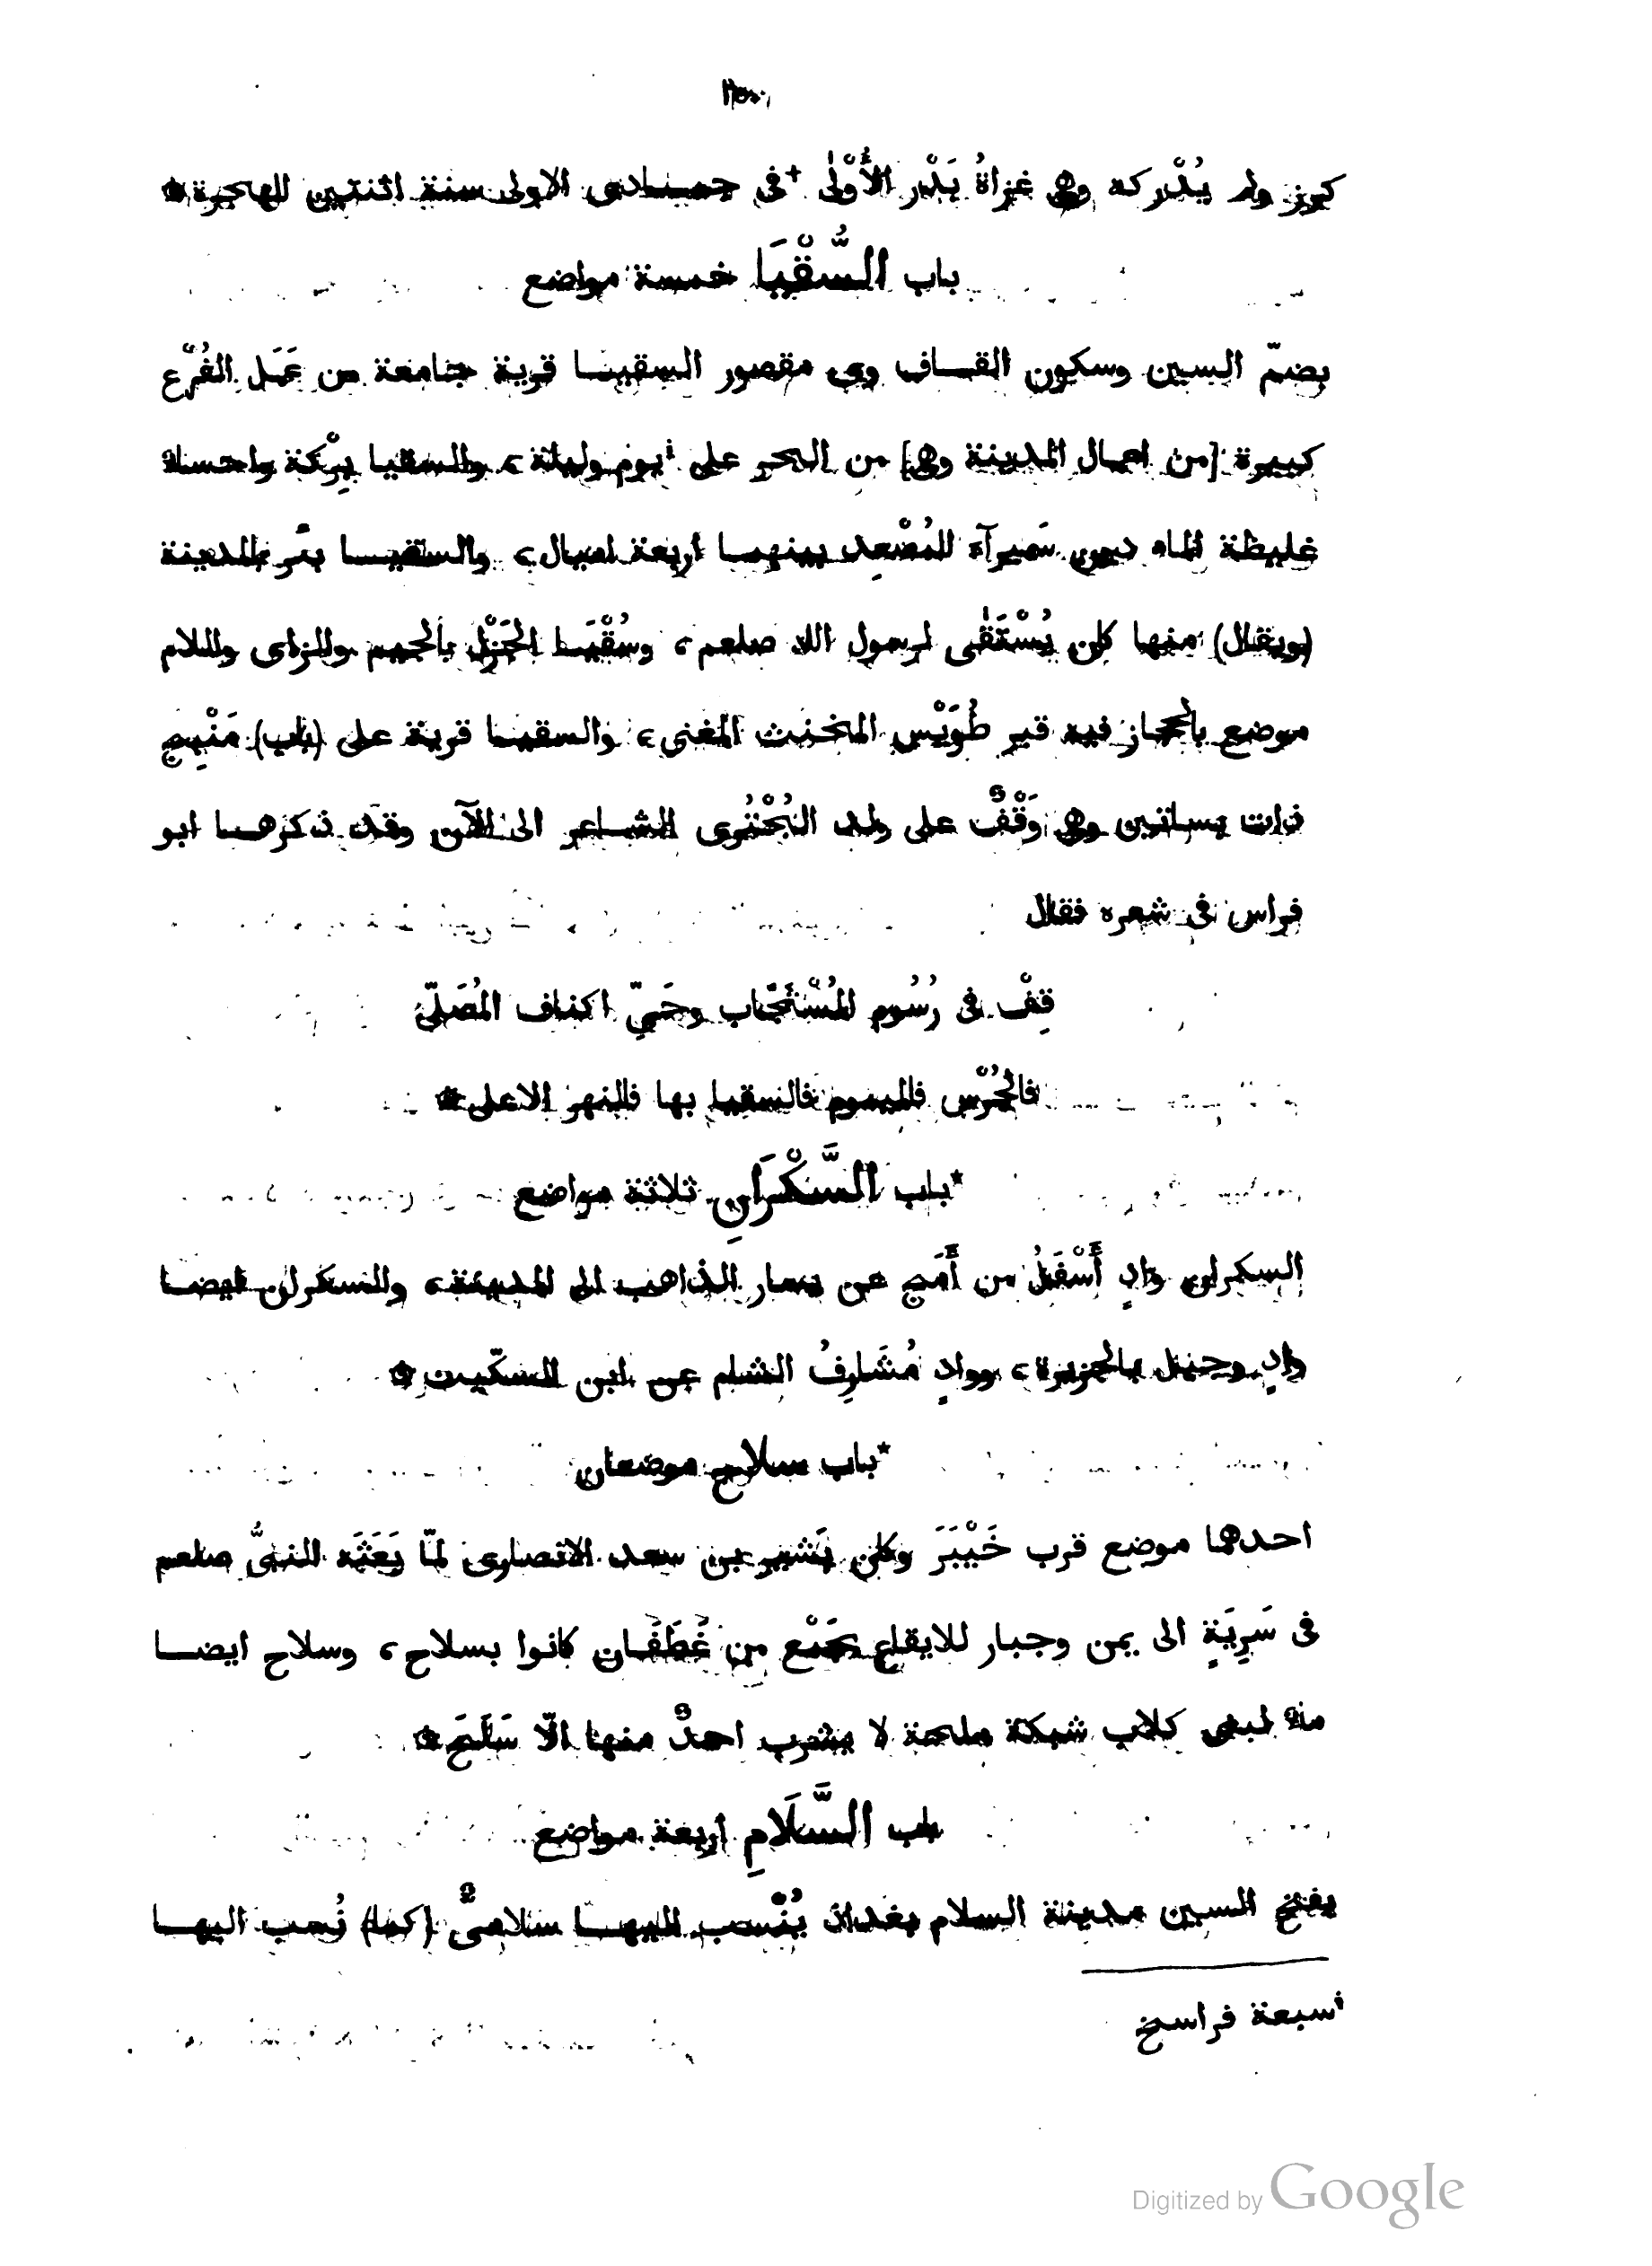 ٢٥٠
كرز ولم يُدْركه وهى غزاةُ بَدْر الأُوْلٰى †فى جمادى الاولى سنة اثنتين للهجرة ۞
باب السُّقْيَا خمسة مواضع
بضمّ السين وسكون القاف وهى مقصور السقيا قرية جامعة من عَمَل الفُرْع
كبيرة [من اعمال المدينة وهى] من البحر على ¹يوم وليلة، والسقيا بِرْكة واحساء
غليظة الماء دون سَميرآء للمُصْعِد بينهما اربعة اميال، والسقيا بئر بالمدينة
(ويقال) منها كان يُسْتَقٰى لرسول الله صلعم، وسُقْيَا الجَزْل بالجيم والزاى واللام
موضع بالحجاز فيه قبر طُوَيْس المخنث المغنى، والسقيا قرية على (باب) مَنْبِج
ذات بساتين وهى وَقْفٌ على ولد البُحْتُرى الشاعر الى الآن وقد ذكرها ابو
فراس فى شعره فقال
قِفْ فى رُسُوم المُسْتَجَاب وحَىِّ اكناف المُصَلَّى
فالجُرْس فالميموم فالسقيا بها فالنهر الاعلى ۞
*باب السَّكْرَانِ ثلاثة مواضع
السكران وادٍ أَسْفَلُ من أَمَج عن يسار الذاهب الى المدينة، والسكران ايضا
وادٍ وجبل بالجزيرة، ووادٍ مُشَارِفُ الشام عن ابن السكّيت ۞
*باب سلاح موضعان
احدهما موضع قرب خَيْبَرَ وكان بَشير بن سعد الانصارى لمّا بَعَثَه النبىُّ صلعم
فى سَرِيَةٍ الى يمن وجبار للايقاع بجَمْع من غَطَفَان كانوا بسلاح، وسلاح ايضا
ماء لبنى كلاب شبكة ملحة لا يشرب احدٌ منها الّا سَلَحَ ۞
باب السَّلَامِ اربعة مواضع
بفتح السين مدينة السلام بغداد يُنْسب اليها سلامىٌّ (كما) نُسب اليها
¹سبعة فراسخ
Digitized by Google